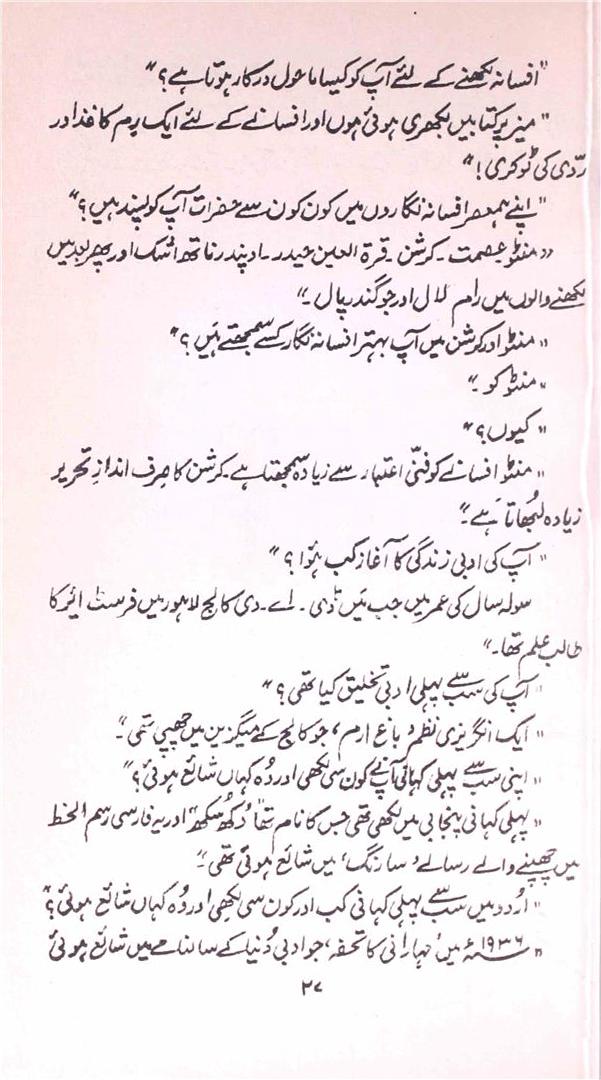 "افسانہ لکھنے کے لئے آپ کو کیسا ماحول درکار ہوتا ہے؟"
"میز پر کتابیں بکھری ہوئی ہوں اور افسانے کے لئے ایک رِم کاغذ اور
ردّی کی ٹوکری!"
"اپنے ہمعصر افسانہ نگاروں میں کون کون سے حضرات آپ کو پسند ہیں؟"
"منٹو عصمت۔ کرشن۔ قرۃ العین حیدر۔ اوپندر ناتھ اشک اور پھر بعد میں
لکھنے والوں میں رام لال اور جوگندر پال۔"
"منٹو اور کرشن میں آپ بہتر افسانہ نگار کسے سمجھتے ہیں؟"
"منٹو کو۔"
"کیوں؟"
"منٹو افسانے کو فنّی اعتبار سے زیادہ سمجھتا ہے۔ کرشن کا صرف اندازِ تحریر
زیادہ لُبھاتا ہے۔"
"آپ کی ادبی زندگی کا آغاز کب ہُوا؟"
سولہ سال کی عمر میں جب میں ڈی۔ اے۔ وی کالج لاہور میں فرسٹ ائیر کا
طالب علم تھا۔"
"آپ کی سب سے پہلی ادبی تخلیق کیا تھی؟"
"ایک انگریزی نظم 'باغِ ارم' جو کالج کے میگزین میں چھپی تھی۔"
"اپنی سب سے پہلی کہانی آپ نے کون سی لکھی اور وُہ کہاں شائع ہوئی؟"
"پہلی کہانی پنجابی میں لکھی تھی جس کا نام تھا "دُکھ سُکھ" اور یہ فارسی رسم الخط
میں چھپنے والے رسالے 'سارنگ' میں شائع ہوئی تھی۔"
"اُردو میں سب سے پہلی کہانی کب اور کون سی لکھی اور وُہ کہاں شائع ہوئی؟"
"۱۹۳۶ء میں 'مہارانی کا تحفہ' جو ادبی دُنیا کے سالنامے میں شائع ہوئی
۲۷